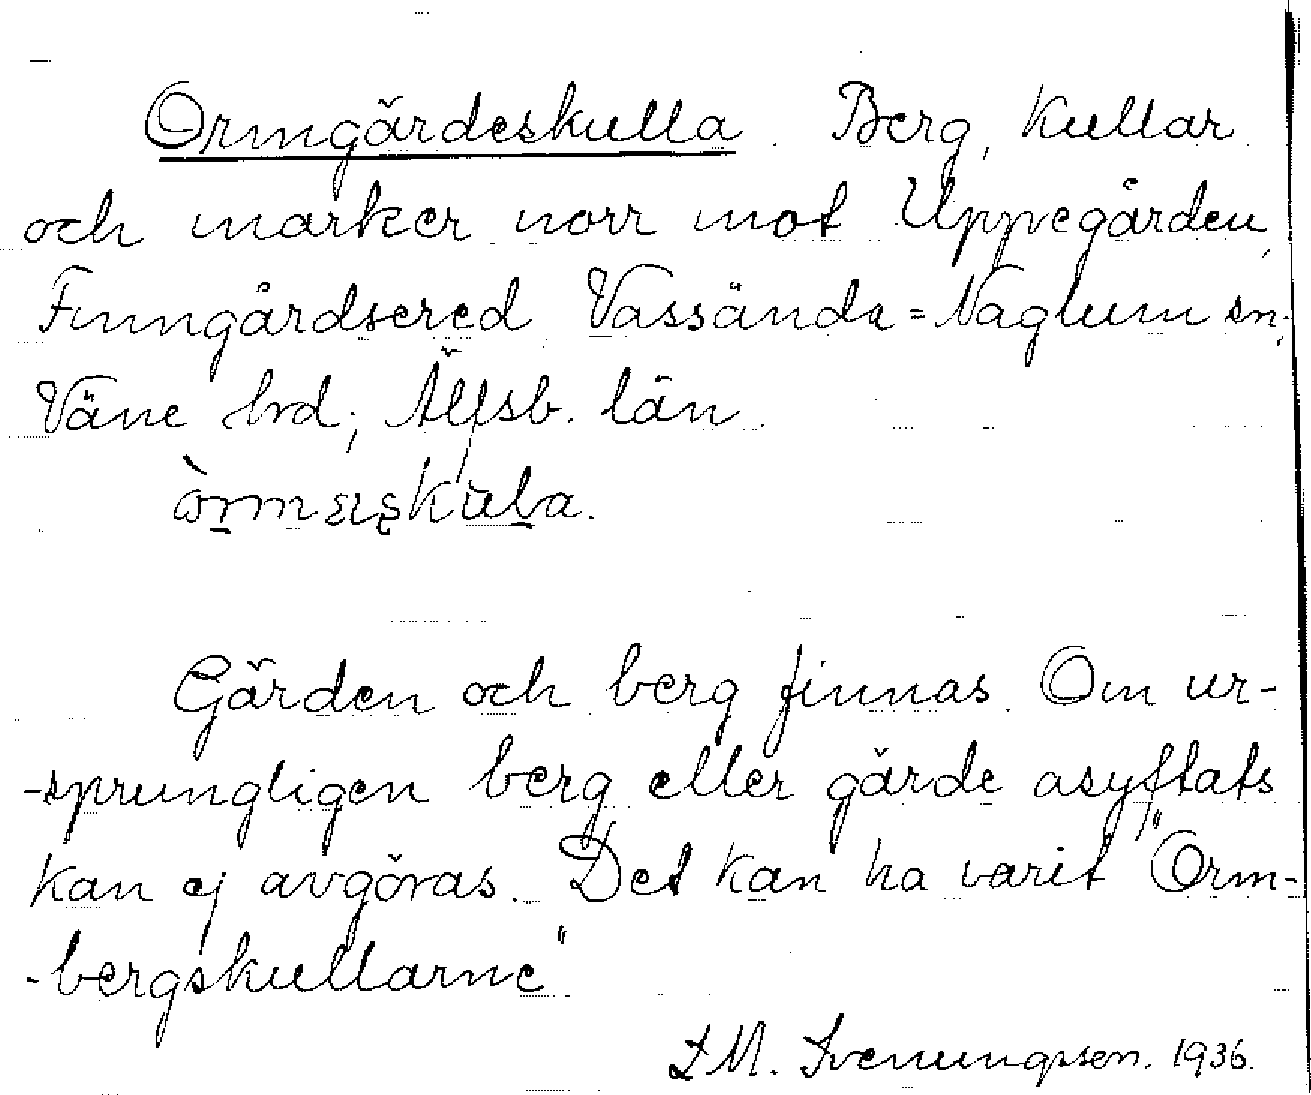 Ormgärdeskulla. Berg, kullar
och marker norr mot Uppegården,
Finngårdsered Vassända=Naglum sn;
Väne hrd; Älfsb. län.

Gärden och berg finnas. Om ur-
-sprungligen berg eller gärde asyftats
kan ej avgöras. Det kan ha varit "Orm-
-bergskullarne"
L M. Svenungsson. 1936.